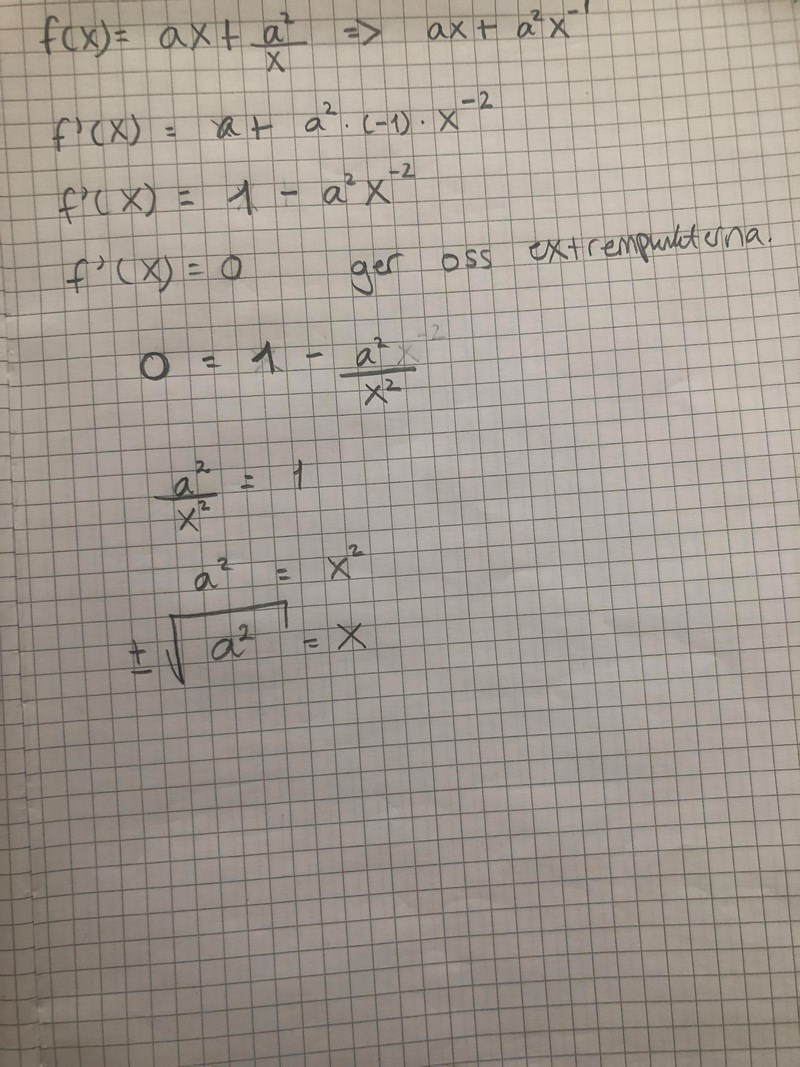 f(x) = ax + a²/x => ax + a²x⁻¹
f'(x) = a + a² · (-1) · x⁻²
f'(x) = 1 - a²x⁻²
f'(x) = 0 ger oss extrempunkterna.
0 = 1 - a²/x²
a²/x² = 1
a² = x²
±√a² = x